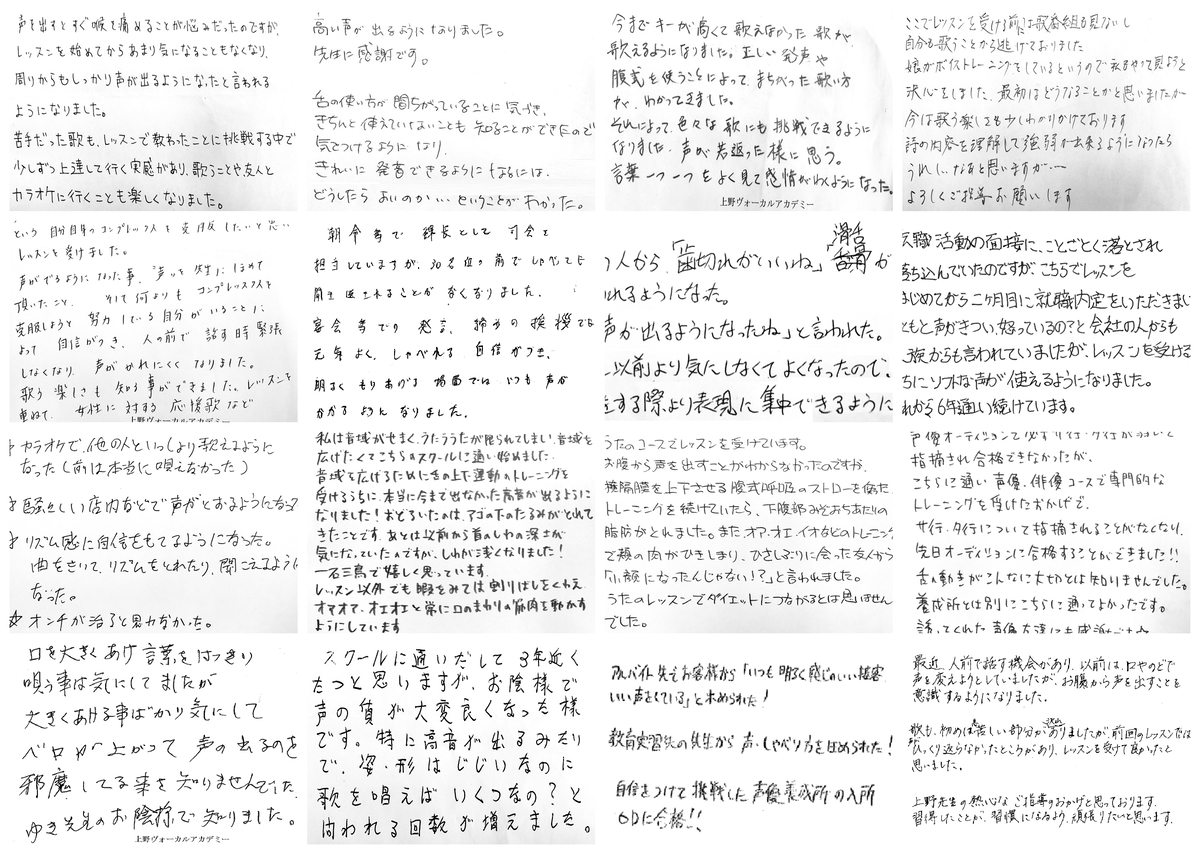 声を出すとすぐ喉を痛めることが悩みだったのですが、
レッスンを始めてからあまり気になることもなくなり、
周りからもしっかり声が出るようになったと言われる
ようになりました。
苦手だった歌も、レッスンで教わったことに挑戦する中で
少しずつ上達して行く実感があり、歌うことや友人と
カラオケに行くことも楽しくなりました。
高い声が出るようになりました。
先生に感謝です。
舌の使い方が間ちがっていることに気づき、
きちんと使えていないことも知ることができたので
気をつけるようになり
きれいに発音できるようになるには、
どうしたらよいのか‥ということがわかった。
今までキーが高くて歌えなかった歌が、
歌えるようになりました。正しい発声や
腹式を使うことによって、まちがった歌い方
が、わかってきました。
それによって、色々な歌にも挑戦できるように
なりました。声が若返った様に思う。
言葉一つ一つをよく見て感情がわくようになった。
上野ヴォーカルアカデミー
ここでレッスンを受ける前は歌番組も見ないし
自分も歌うことから逃げておりました
娘がボイストレーニングをしているというので私もやって見ようと
決心をしました、最初はどうなることかと思いましたが
今は歌う楽しさも少しわかりかけております
詩の内容を理解して強弱が出来るようになったら
うれしいなあと思いますが……
よろしくご指導お願いします
という自分自身のコンプレックスを克服したいと思い
レッスンを受けました。
声がでるようになった事、声を先生にほめて
頂いたこと、そして何よりもコンプレックスを
克服しようと努力している自分がいることに
よって自信がつき、人の前で話す時緊張
しなくなり、声がかれにくくなりました。
歌う楽しさも知る事ができました、レッスンを
重ねて、女性に対する応援歌など
上野ヴォーカルアカデミー
朝令等で課長として司会を
担当していますが、30名位の前でしゃべっても
聞き返されることがなくなりました。
宴会等での発言、締めの挨拶でも
元気よく、しゃべれる自信がつき、
明るくもりあげる場面では、いつも声が
かかるようになりました。
人から、「歯切れがいいね」「滑舌が
われるようになった。
声が出るようになったね」と言われた。
以前より気にしなくてよくなったので、
する際より表現に集中できるように
転職活動の面接に、ことごとく落とされ
落ち込んでいたのですが、こちらでレッスンを
はじめてから二ヶ月目に就職内定をいただきまし
もともと声がきつい、怒っているの?と会社の人からも
家族からも言われていましたが、レッスンを受ける
ちにソフトな声が使えるようになりました。
れから6年通い続けています。
カラオケで、他の人といっしょに歌えるように
なった(前は本当に唄えなかった)
騒々しい店内などで声がとおるようになっ
リズム感に自信をもてるようになった。
曲をきいて、リズムをとれたり、聞こえるように
なった。
☆オンチが治ると思わなかった。
私は音域がせまく、うたううたが限られてしまい、音域を
広げたくてこちらのスクールに通い始めました。
音域を広げるために舌の上下運動のトレーニングを
受けるうちに、本当に今まで出なかった高音が出るように
なりました!おどろいたのは、アゴの下のたるみがとれて
きたことです。あとは以前から首のしわの深さが
気になっていたのですが、しわが浅くなりました!
一石三鳥で嬉しく思っています。
レッスン以外でも暇をみては割りばしをくわえ
オアオア、オエオエと常に口のまわりの筋肉を動かす
ようにしています
うたのコースでレッスンを受けています。
お腹から声を出すことがわからなかったのですが、
横隔膜を上下させる腹式呼吸のストローを使った
トレーニングを続けていたら、下腹部、みぞおちあたりの
脂肪がとれました。また、オア、オエ、イオなどのトレーニング
で頬の肉がひきしまり、ひさしぶりに会った友人から
「小顔になったんじゃない!?」と言われました。
うたのレッスンでダイエットにつながるとは思いません
でした。
声優オーディションで必ずサ行・タ行が弱いと
指摘され合格できなかったが、
こちらに通い声優、俳優コースで専門的な
トレーニングを受けたおかげで、
サ行、タ行について指摘されることがなくなり、
先日オーディションに合格することができました!!
舌の動きがこんなに大切とは知りませんでした。
養成所とは別にこちらに通ってよかったです。
誘ってくれた声優友達にも感謝です
口を大きくあけ言葉をはっきり
唄う事は気にしてましたが
大きくあける事ばかり気にして
ベロが上がって声の出るのを
邪魔してる事を知りませんでした
ゆき先生のお陰様で知りました。
上野ヴォーカルアカデミー
スクールに通いだして3年近く
たつと思いますが、お陰様で
声の質が大変良くなった様
です。特に高音が出るみたり
で、姿・形はじじいなのに
歌を唱えばいくつなの?と
問われる回数が増えました。
アルバイト先でお客様から「いつも明るく感じのいい接客
いい声をしている」と求められた!
教育実習先の先生から声・しゃべり方を褒められた!
自信をつけて挑戦した声優養成所の入所
ODに合格!!
最近、人前で話す機会があり、以前は、口やのどで
声を変えようとしていましたが、お腹から声を出すことを
意識するようになりました。
歌も、初めは苦しい部分がありましたが、前回のレッスンでは
ひっくり返らなかったところがあり、レッスンを受けて良かったと
思いました。
上野先生の熱心なご指導のおかげと思っております。
習得したことが、習慣になるよう、頑張りたいと思います。